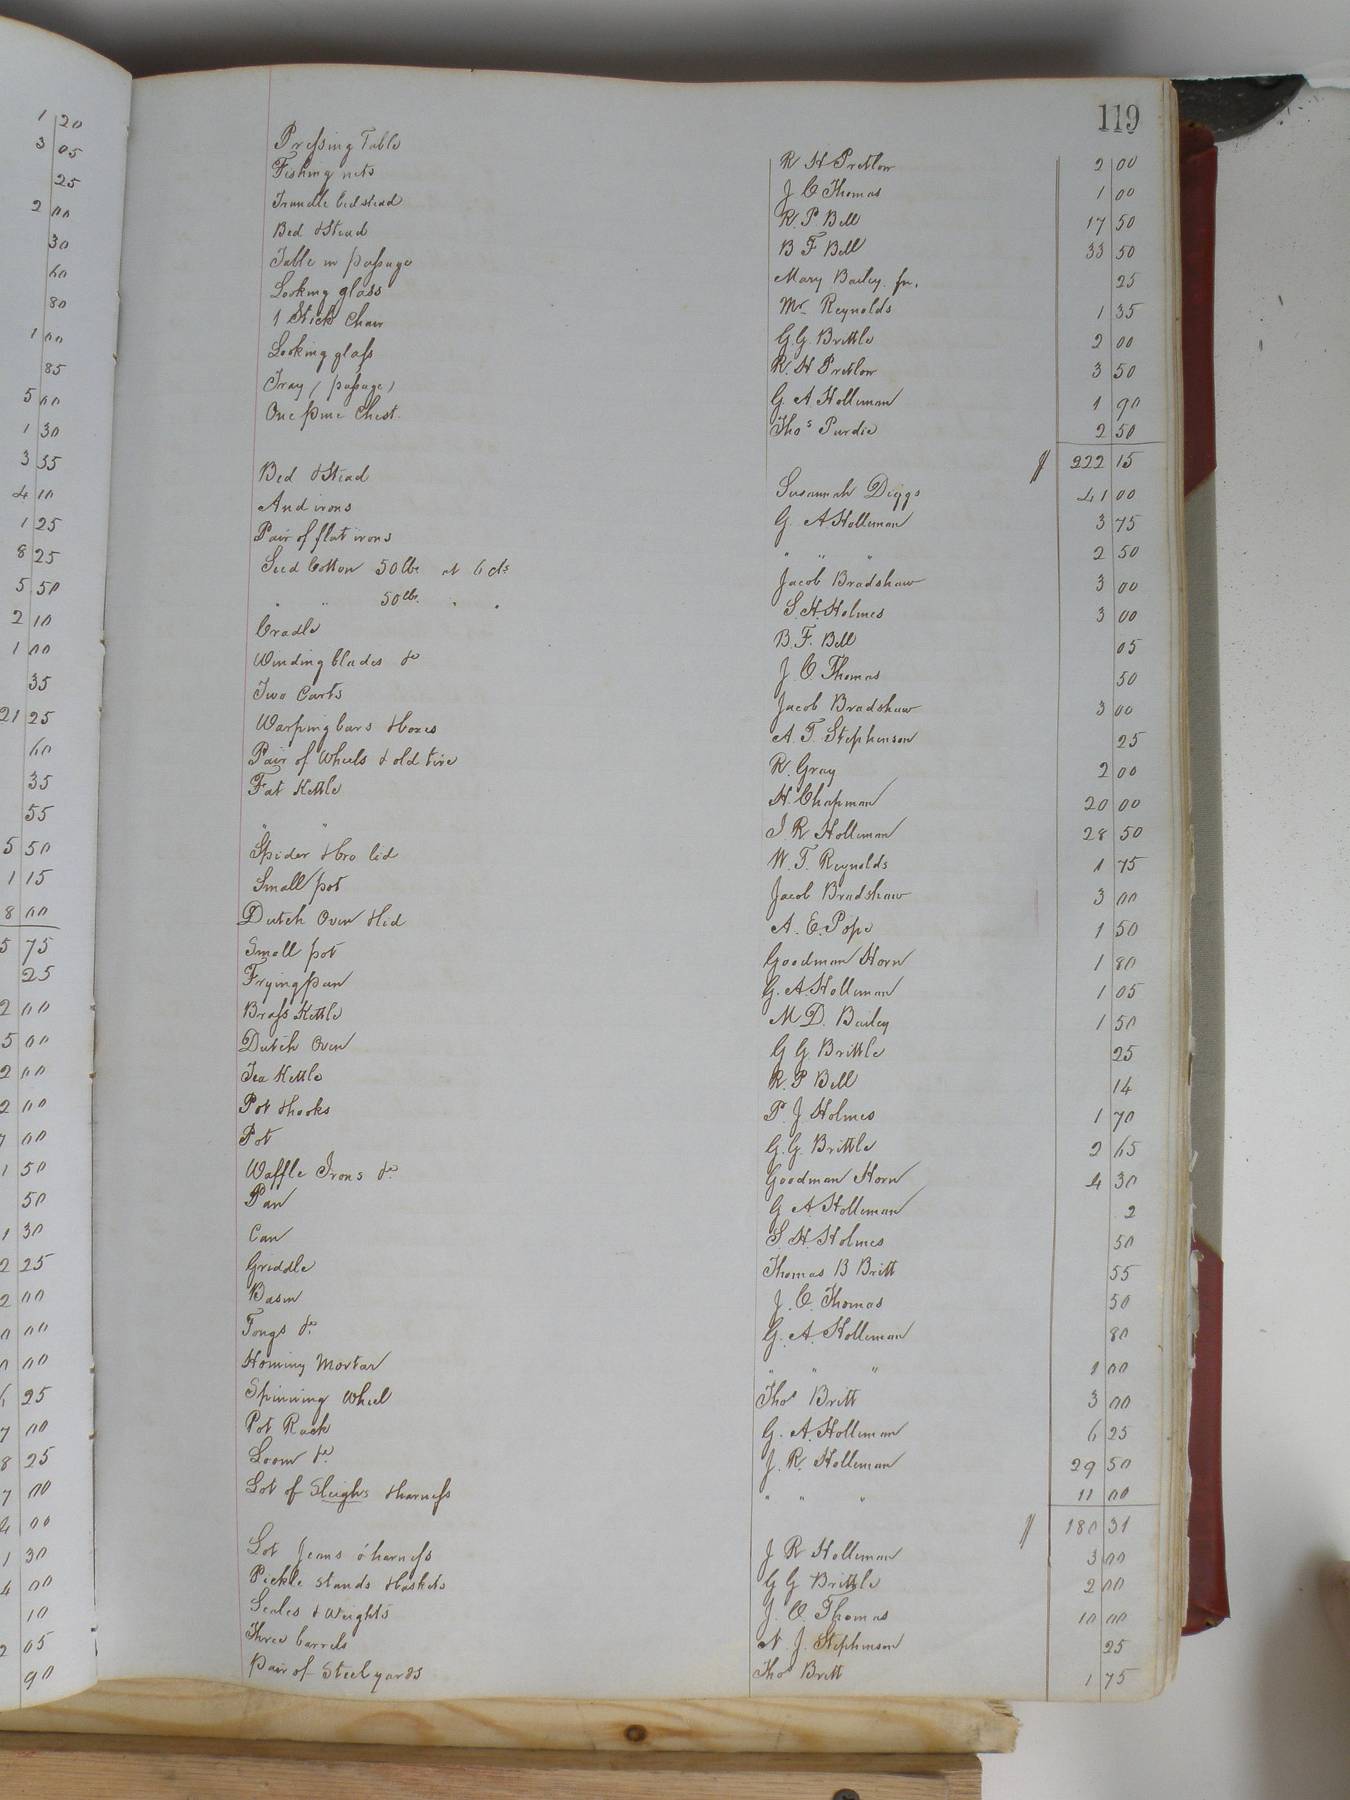 119
1 20
3 05
25
2 00
30
60
80
1 00
85
5 00
1 30
3 35
4 10
1 25
8 25
5 50
2 10
1 00
35
21 25
60
35
55
5 50
1 15
8 00
5 75
25
2 00
5 00
2 00
2 00
7 00
1 50
50
1 30
2 25
2 00
0 00
0 00
6 25
7 00
8 25
7 00
4 00
1 30
4 00
10
2 05
90
Pressing Table R H Pretlow 2 00
Fishing nets J C Thomas 1 00
Trundle bedstead R. P Bell 17 50
Bed &Stead B F Bell 33 50
Table in passage Mary Bailey Jr. 25
Looking glass Mr Reynolds 1 35
1 Stick Chair G. G. Brittle 2 00
Looking glass R. H Pretlow 3 50
Tray (passage) G. A Holleman 1 90
One pine Chest. Thos Purdie 2 50
222 15
Bed &Stead Susannah Diggs 41 00
And irons G. A. Holleman 3 75
Pair of flat irons " " " 2 50
Seed Cotton 50lbs at 6 cts Jacob Bradshaw 3 00
" " 50lbs. " " S. H. Holmes 3 00
Cradle B. F. Bell 05
Winding blades &c J. C. Thomas 50
Two Carts Jacob Bradshaw 3 00
Warping bars &boxes A. T. Stephenson 25
Pair of Wheels & old tire R. Gray 2 00
Fat Kettle H. Chapman 20 00
" " J. R. Holleman 28 50
Spider &bro lid W. T. Reynolds 1 75
Small pot Jacob Bradshaw 3 00
Dutch Oven &lid A. E. Pope 1 50
Small pot Goodman Horn 1 80
Fryingpan G. A. Holleman 1 05
Brass Kettle M D. Bailey 1 50
Dutch Oven G G. Brittle 25
Tea Kettle R. P Bell 14
Pot &hooks P. J. Holmes 1 70
Pot G. G. Brittle 2 65
Waffle Irons &c Goodman Horn 4 30
Pan G A Holleman 2
Can S. H. Holmes 50
Griddle Thomas B Britt 55
Basin J. C. Thomas 50
Tongs &c G. A. Holleman 80
Hominy Mortar " " " 1 00
Spinning Wheel Thos Britt 3 00
Pot Rack G. A. Holleman 6 25
Loom &c J. R. Holleman 29 50
Lot of Sleighs &harness " " " 11 00
180 31
Lot Jeans & harness J R Holleman 3 00
Pickle stands &baskets G G Brittle 2 00
Scales & Weights J. C. Thomas 10 00
Three barrels N. J. Stephenson 25
Pair of Steelyards Thos Britt 1 75